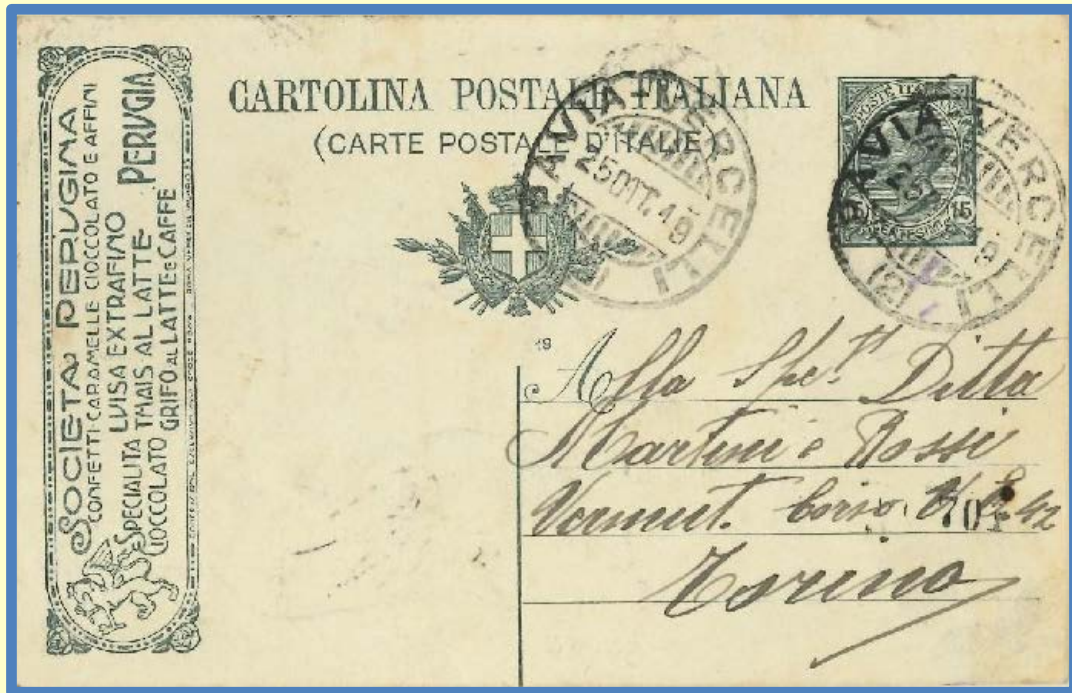 SOCIETA PERUGINA
CONFETTI CARAMELLE CIOCCOLATO E AFFINI
SPECIALITA LUISA EXTRAFINO
TMAIS AL LATTE - PERUGIA
CIOCCOLATO GRIFO AL LATTE E CAFFE
CARTOLINA POSTALE ITALIANA
(CARTE POSTALE D'ITALIE)
PAVIA-VERCELLI
25 OTT. 19
PAVIA-VERCELLI
(2)
15 15
19
Alla Spet. Ditta
Martini e Rossi
Vermut. Corso V. E. 42
Torino